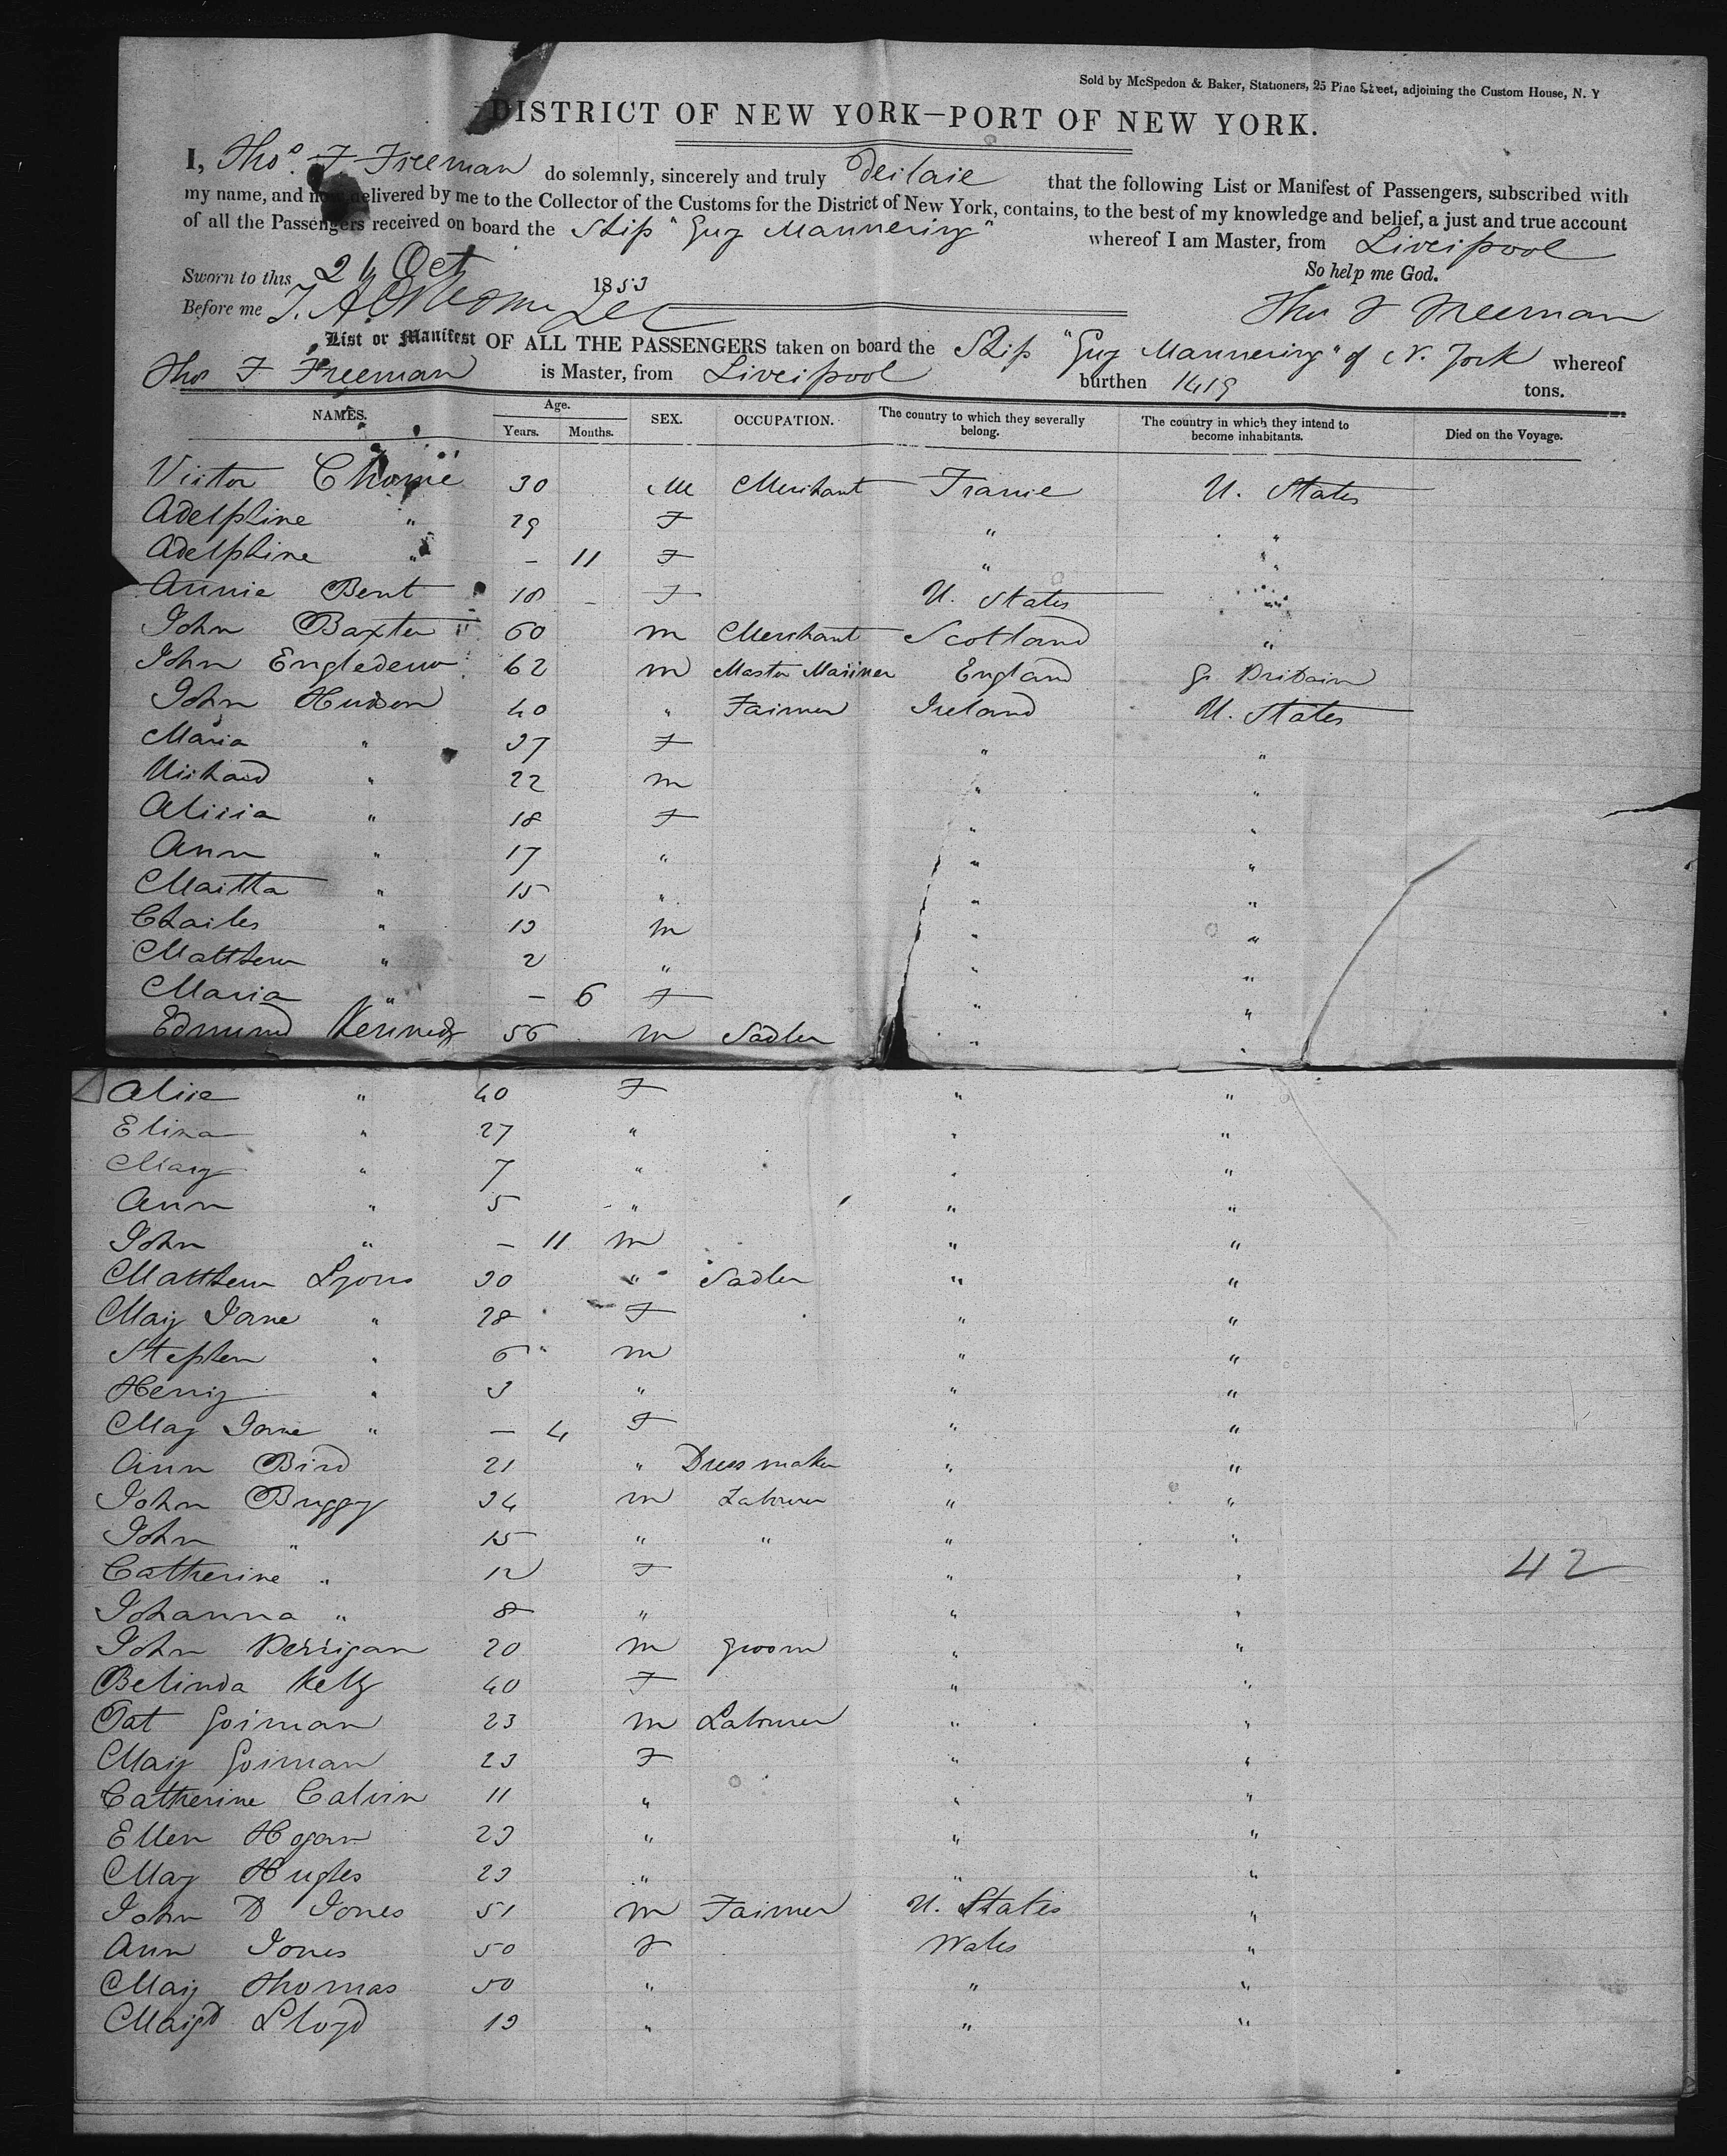 Sold by McSpedon & Baker, Stationers, 25 Pine Street, adjoining the Custom House, N. Y
DISTRICT OF NEW YORK—PORT OF NEW YORK.
I, Thos. F Freeman do solemnly, sincerely and truly declare that the following List or Manifest of Passengers, subscribed with
my name, and now delivered by me to the Collector of the Customs for the District of New York, contains, to the best of my knowledge and belief, a just and true account
of all the Passengers received on board the Ship "Guy Mannering" whereof I am Master, from Liverpool
So help me God.
Sworn to this Oct 1853
Before me Thos F Freeman
List or Manifest OF ALL THE PASSENGERS taken on board the Ship "Guy Mannering" of N. York whereof
Thos F Freeman is Master, from Liverpool burthen 1419 tons.
NAMES. Age. Years. Months. SEX. OCCUPATION. The country to which they severally belong. The country in which they intend to become inhabitants. Died on the Voyage.
Victor 30 M Merchant France U. States
Adelphine " 29 F " "
Adelphine " – 11 F " "
Annie Bent 18 – F U. States "
John Baxter 60 m Merchant Scotland "
John Engledew 62 m Master Mariner England G. Britain
John Hudson 40 " Farmer Ireland U. States
Maria " 37 F " "
Richard " 22 m " "
Alicia " 18 F " "
Ann " 17 " " "
Martha " 15 " " "
Charles " 13 m " "
Matthew " 2 " " "
Maria " – 6 F " "
Edmund Kennedy 56 m Sadler " "
Alice " 40 F " "
Eliza " 27 " " "
Mary " 7 " " "
Ann " 5 " " "
John " – 11 m " "
Matthew Lyons 30 " Sadler " "
Mary Jane " 28 F " "
Stephen " 6 m " "
Henry " 3 " " "
Mary Jane " – 4 F " "
Ann Bird 21 " Dressmaker " "
John Buggy 34 m Labourer " "
John " 15 " " " "
Catherine " 12 F " " 42
Johanna " 8 " " "
John Kerrigan 20 m Groom " "
Belinda Kelly 40 F " "
Pat Gorman 23 m Labourer " "
Mary Gorman 23 F " "
Catherine Calvin 11 " " "
Ellen Hogan 23 " " "
Mary Hughes 23 " " "
John D Jones 51 m Farmer U. States "
Ann Jones 50 F Wales "
Mary Thomas 50 " " "
Margt Lloyd 19 " " "